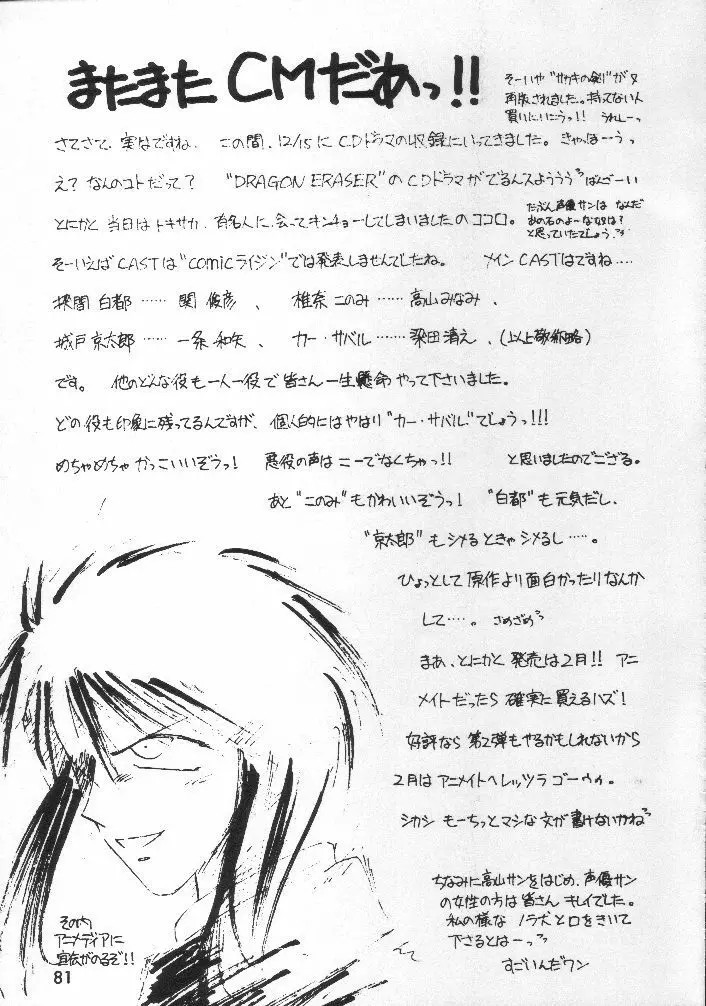 またまた CMだあっ!!
そーいや"サカキの剣"が又
再販されました。持ってない人
買いにいこうっ!! うれしーっ
さてさて、実はですね、この間、12/15にCDドラマの収録にいってきました。きゃっほーうっ
え?なんのコトだって? "DRAGON ERASER"のCDドラマがでるんスようううっばんざーい
とにかく当日はトキサカ、有名人に会ってキンチョーしてしまいましたのココロ。
たぶん声優サンは なんだ
あの石のよーな奴は?
と思っていたでしょう。
そーいえばCASTは"comicライジン"では発表しませんでしたね。 メインCASTはですね‥‥
探間 白都 ‥‥‥ 関 俊彦 、 椎奈 このみ ‥‥‥ 高山 みなみ 、
城戸 京太郎 ‥‥‥ 一条 和矢 、 カー・サバル ‥‥‥ 梁田 清之 、(以上敬称略)
です。 他のどんな役も一人一役で皆さん一生懸命やって下さいました。
どの役も印象に残ってるんですが、個人的にはやはり"カー・サバル"でしょうっ!!!
めちゃめちゃかっこいいぞうっ! 悪役の声はこーでなくちゃっ!! と思いましたのでござる。
あと"このみ"もかわいいぞうっ! "白都"も元気だし、
"京太郎"もシメるときゃシメるし‥‥。
ひょっとして原作より面白かったりなんか
して‥‥。 さめざめっ
まあ、とにかく発売は2月!! アニ
メイトだったら確実に買えるハズ!
好評なら第2弾もやるかもしれないから
2月はアニメイトへレッツラゴーゥゥ。
シカシ もーちっとマシな文が書けないかねっ
ちなみに高山サンをはじめ、声優サン
の女性の方は皆さんキレイでした。
私の様なノラ犬と口をきいて
下さるとはーっ
すごいんだワン
その内
アニメディアに
宣伝がのるぞ!!
81